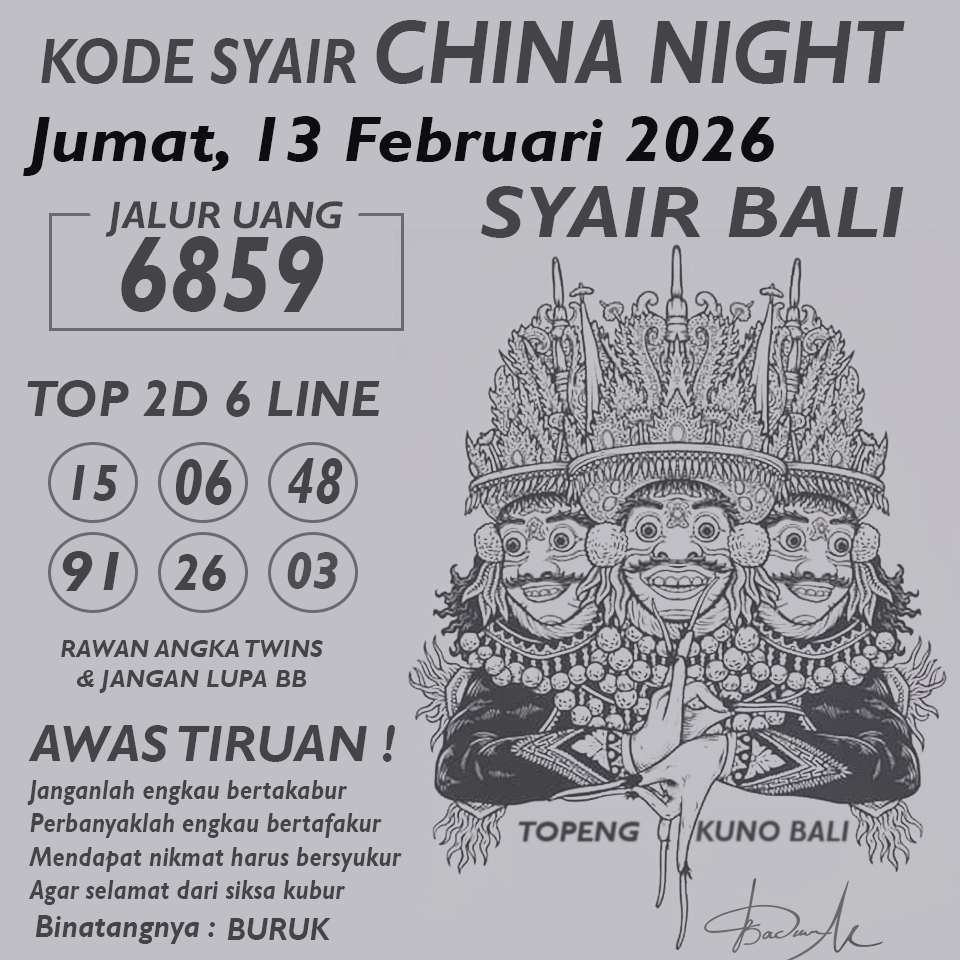 KODE SYAIR CHINA NIGHT
Jumat, 13 Februari 2026
SYAIR BALI
JALUR UANG
6859
TOP 2D 6 LINE
15 06 48
91 26 03
RAWAN ANGKA TWINS
& JANGAN LUPA BB
AWAS TIRUAN !
Janganlah engkau bertakabur
Perbanyaklah engkau bertafakur
Mendapat nikmat harus bersyukur
Agar selamat dari siksa kubur
Binatangnya : BURUK
TOPENG KUNO BALI